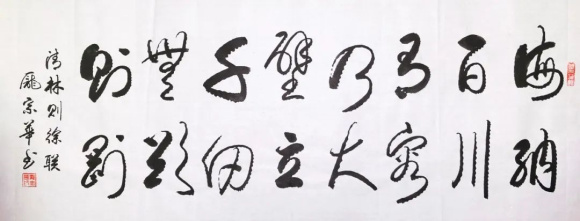 海纳
百川
有容
乃大
壁立
千仞
無欲
则刚
清林则徐联
龐宗華书